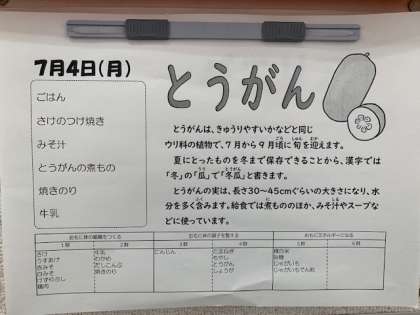 7月4日(月)
ごはん
さけのつけ焼き
みそ汁
とうがんの煮もの
焼きのり
牛乳
とうがん
とうがんは、きゅうりやすいかなどと同じ
ウリ科の植物で、7月から9月頃に旬を迎えます。
夏にとったものを冬まで保存できることから、漢字では
「冬」の「瓜」で「冬瓜」と書きます。
とうがんの実は、長さ30〜45cmぐらいの大きさになり、水
分を多く含みます。給食では煮もののほか、みそ汁やスープな
どに使っています。
おもに体の組織をつくる
おもに体の調子を整える
おもにエネルギーになる
1群 2群 3群 4群 5群 6群
さけ 牛乳 にんじん たまねぎ 精白米
うすあげ わかめ もやし 砂糖
赤みそ だしこんぶ とうがん じゃがいも
白みそ 焼きのり しょうが じゃがいもでん粉
けずりぶし
鶏肉